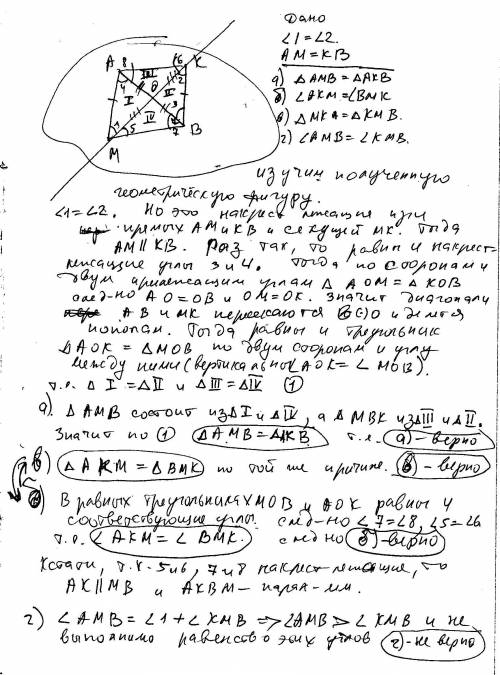 Дано
∠1=∠2.
AM=KB
а) △AMB=△AKB
б) ∠AKM=∠BMK
в) △MKA=△KMB.
г) ∠AMB=∠KMB.
A 8 III 6 K
4 θ 2
I II
3
1 5 IV 7 B
M
изучим полученную
геометрическую фигуру.
∠1=∠2. Но это накрест лежащие при
прямых AM и KB и секущей MK. Тогда
AM∥KB. Раз так, то равны и накрест-
лежащие углы 3 и 4. Тогда по стороне и
двум прилежащим углам △AOM=△KOB
след-но AO=OB и OM=OK. Значит диагонали
AB и MK пересекаются в(·)O и делятся
пополам. Тогда равны и треугольник
△AOK=△MOB по двум сторонам и углу
между ними (вертикальные ∠AOK=∠MOB).
т.е. △I=△II и △III=△IV (1)
а) △AMB состоит из △I и △IV, а △MBK из △III и △II.
Значит по (1) △AMB=△AKB т.е. а)-верно
в) △AKM=△BMK по той же причине. в)-верно
б) В равных треугольниках MOB и AOK равны и
соответствующие углы. след-но ∠7=∠8, ∠5=∠6
т.е. ∠AKM=∠BMK. след но б)-верно
Кстати, т.к. 5 и 6, 7 и 8 накрест лежащие, то
AK∥MB и AKBM - парал-мм.
г) ∠AMB=∠1+∠KMB => ∠AMB>∠KMB и не
выполнимо равенство этих углов г)-не верно